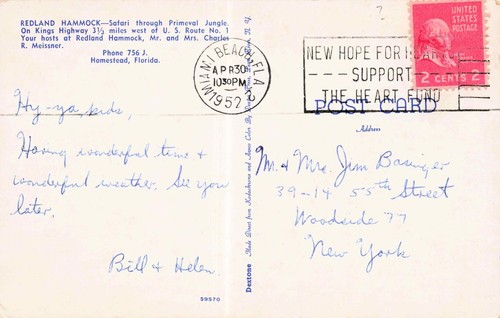 REDLAND HAMMOCK—Safari through Primeval Jungle.
On Kings Highway 3½ miles west of U. S. Route No. 1
Your hosts at Redland Hammock, Mr. and Mrs. Charles
R. Meissner.
Phone 756 J.
Homestead, Florida.
Hy-ya kids,
Having wonderful time &
wonderful weather. See you
later.
Bill & Helen
59570
Dexstone Made Direct from Kodachrome and Ansco Color By
MIAMI BEACH, FLA.
APR 30
10 30 PM
1952
2
?
NEW HOPE FOR
SUPPORT
THE HEART FUND
UNITED
STATES
POSTAGE
2 CENTS 2
POST CARD
Address
Mr. & Mrs. Jim Basinger
39-14 55th Street
Woodside 77
New York